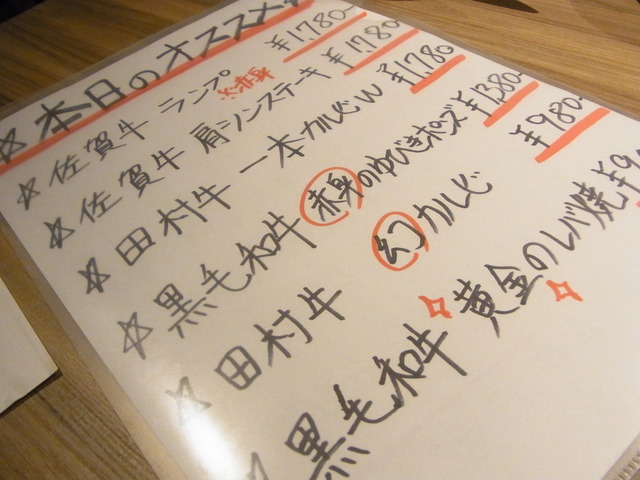 ☆本日のオススメ
☆佐賀牛 ランプ ※赤身 ¥1,780-
☆佐賀牛 肩シンステーキ ¥1,780-
☆田村牛 一本カルビ ¥1,780
☆黒毛和牛 赤身のゆびきポンズ ¥1380-
☆田村牛 幻カルビ ¥980-
☆黒毛和牛 黄金のレバ焼 ¥9